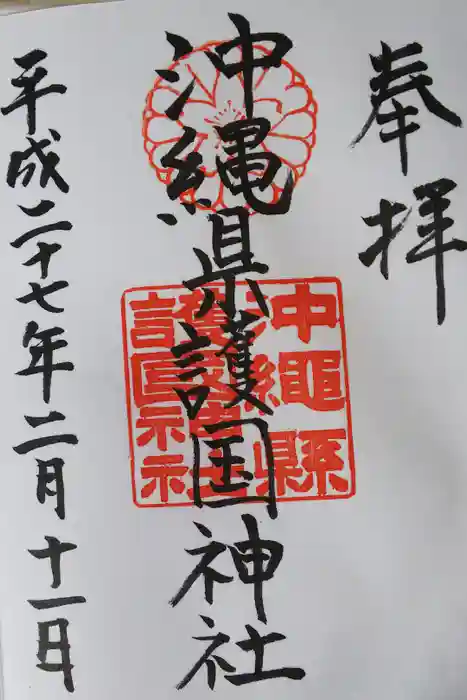 奉拝
沖縄県護国神社
沖繩縣護国神社
平成二十七年二月十一日